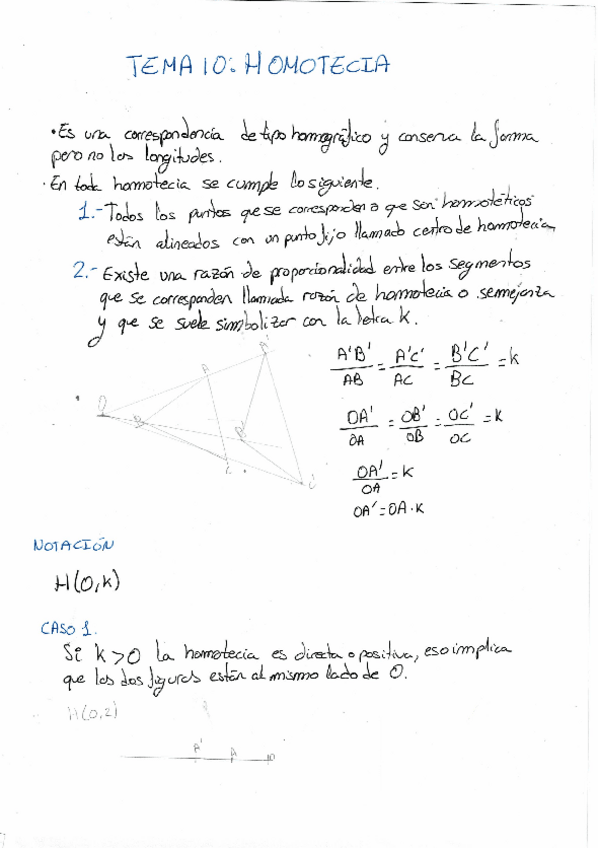 TEMA 10: HOMOTECIA
• Es una correspondencia de tipo homográfico y conserva la forma
pero no las longitudes.
• En toda homotecia se cumple lo siguiente.
1.- Todos los puntos que se corresponden o que son homotéticos
están alineados con un punto fijo llamado centro de homotecia.
2.- Existe una razón de proporcionalidad entre los segmentos
que se corresponden llamada razón de homotecia o semejanza
y que se suele simbolizar con la letra K.
A'B'/AB = A'C'/AC = B'C'/BC = k
OA'/OA = OB'/OB = OC'/OC = K
OA'/OA = K
OA' = OA · K
O B A A' B' C C'
NOTACIÓN
H(O,K)
CASO 1.
Si K > 0 la homotecia es directa o positiva, eso implica
que las dos figuras están al mismo lado de O.
H(O,2)
A' A O